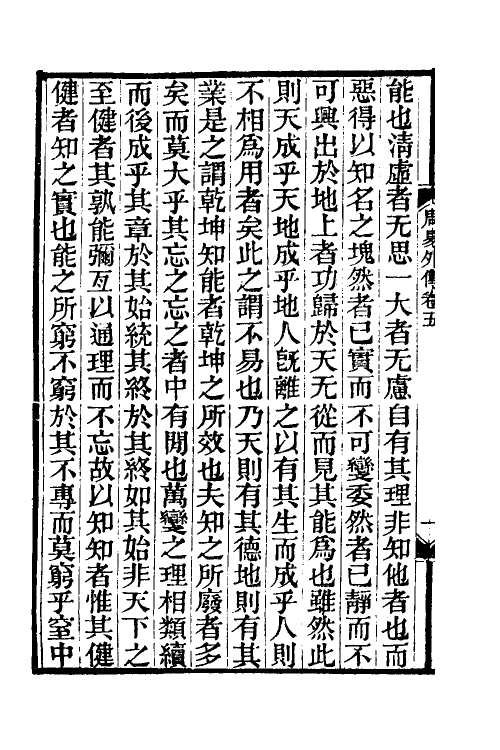 能也清虛者无思一大者无慮自有其理非知他者也而
惡得以知名之塊然者已實而不可變委然者已靜而不
可興出於地上者功歸於天无從而見其能爲也雖然此
則天成乎天地成乎地人旣離之以有其生而成乎人則
不相爲用者矣此之謂不易也乃天則有其德地則有其
業是之謂乾坤知能者乾坤之所效也夫知之所廢者多
矣而莫大乎其忘之忘之者中有閒也萬變之理相類續
而後成乎其章於其始統其終於其終如其始非天下之
至健者其孰能彌亙以通理而不忘故以知知者惟其健
健者知之實也能之所窮不窮於其不專而莫窮乎窒中
周易外傳卷五